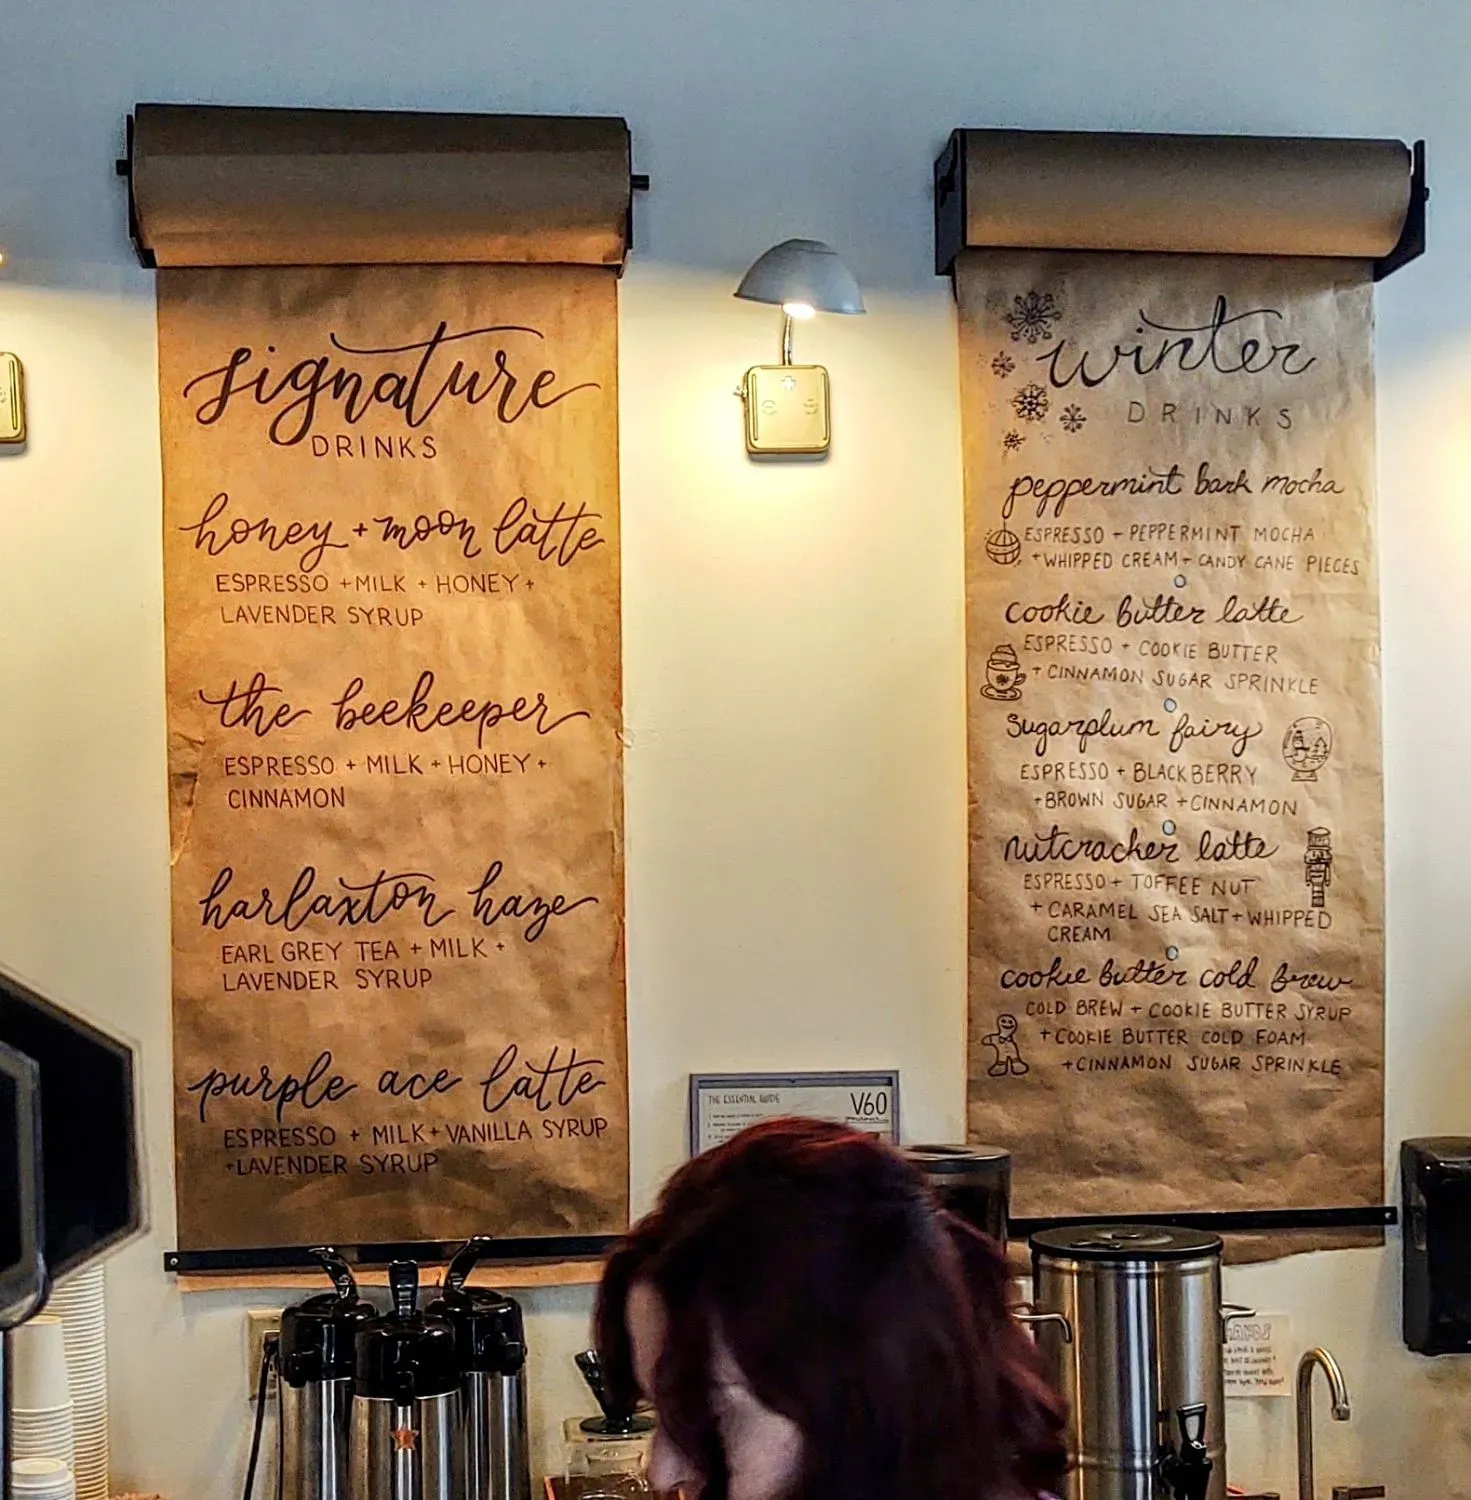 signature
DRINKS
honey + moon latte
ESPRESSO + MILK + HONEY +
LAVENDER SYRUP
the beekeeper
ESPRESSO + MILK + HONEY +
CINNAMON
harlaxton haze
EARL GREY TEA + MILK +
LAVENDER SYRUP
purple ace latte
ESPRESSO + MILK + VANILLA SYRUP
+ LAVENDER SYRUP
winter
DRINKS
peppermint bark mocha
ESPRESSO + PEPPERMINT MOCHA
+ WHIPPED CREAM + CANDY CANE PIECES
cookie butter latte
ESPRESSO + COOKIE BUTTER
+ CINNAMON SUGAR SPRINKLE
sugarplum fairy
ESPRESSO + BLACKBERRY
+ BROWN SUGAR + CINNAMON
nutcracker latte
ESPRESSO + TOFFEE NUT
+ CARAMEL SEA SALT + WHIPPED
CREAM
cookie butter cold brew
COLD BREW + COOKIE BUTTER SYRUP
+ COOKIE BUTTER COLD FOAM
+ CINNAMON SUGAR SPRINKLE
THE ESSENTIAL GUIDE
V60